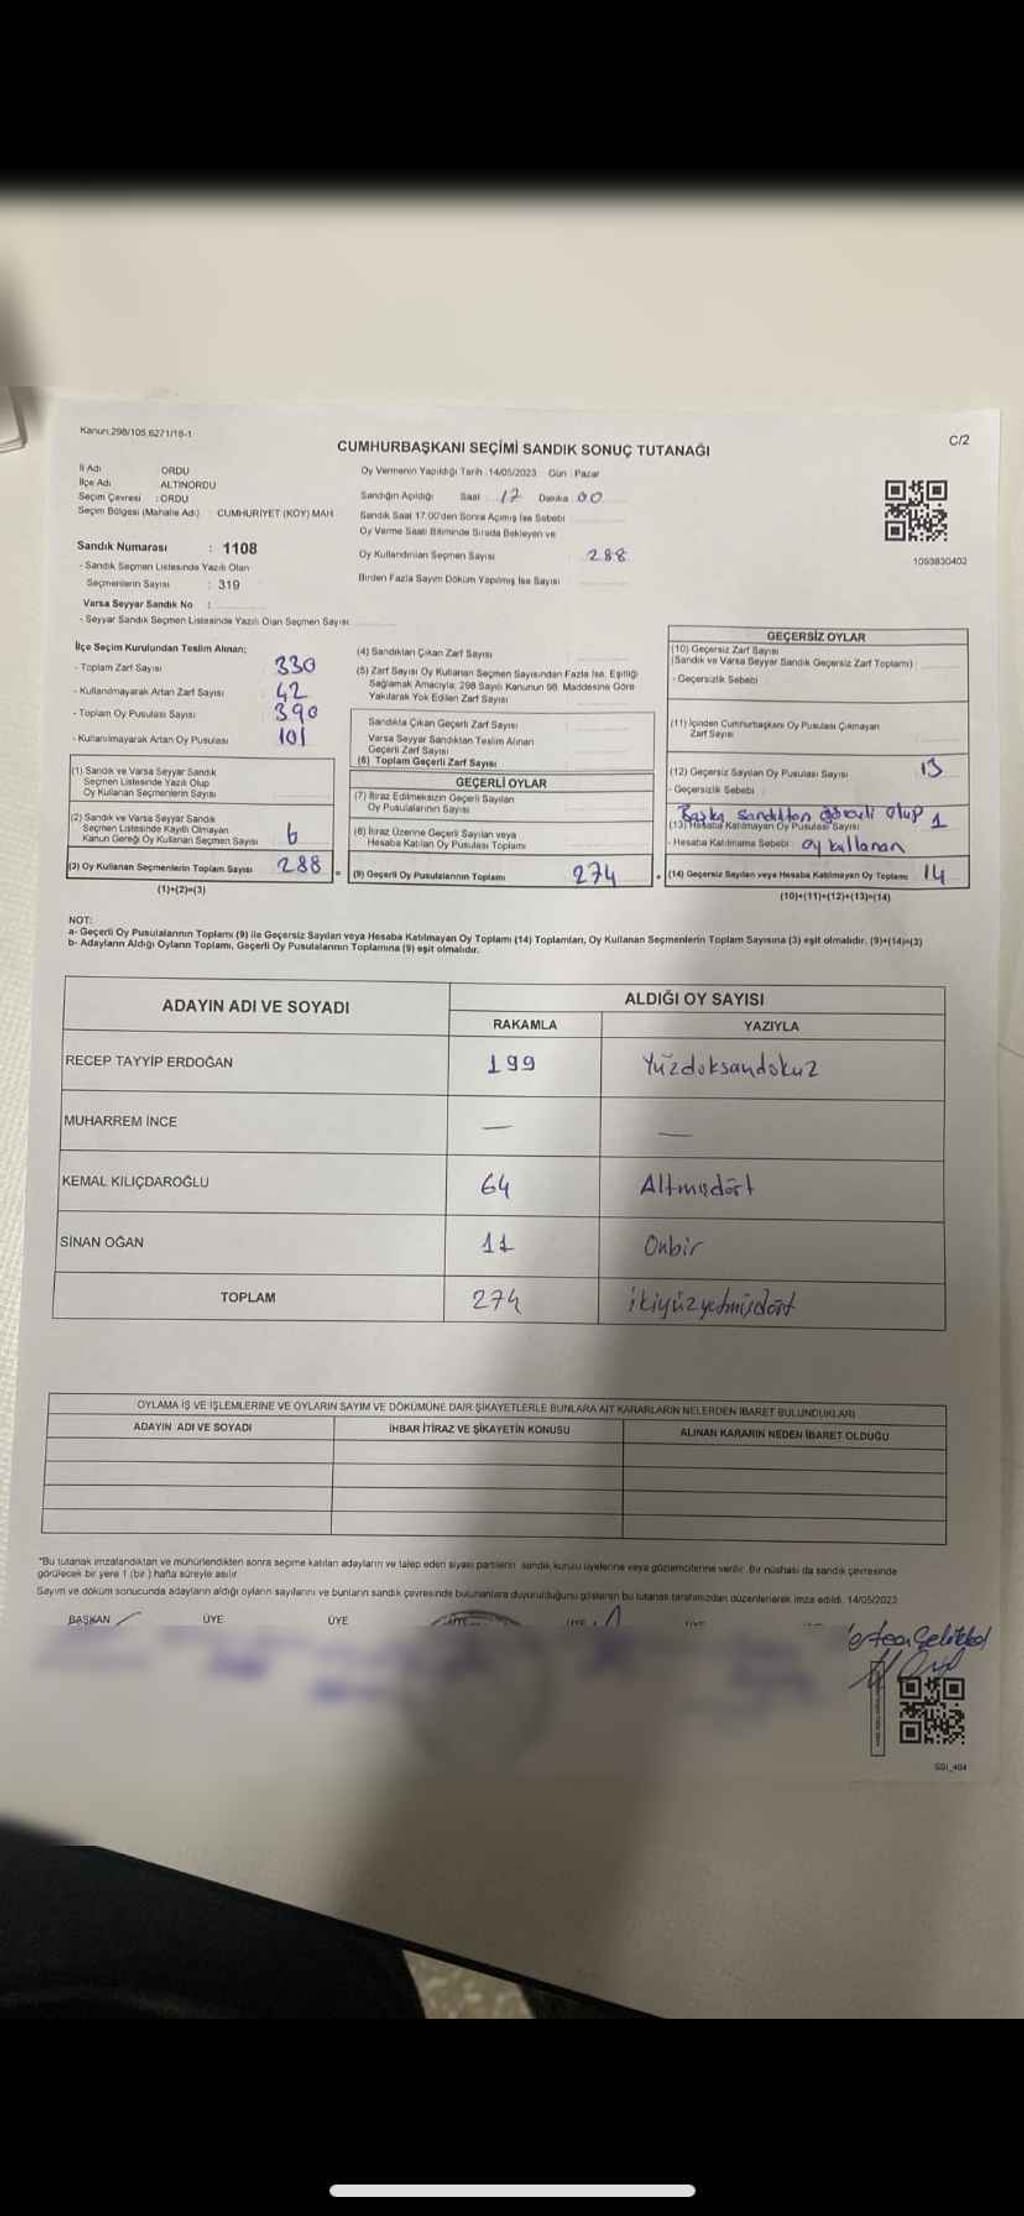 Kanun:298/105,6271/18-1
C/2
CUMHURBAŞKANI SEÇİMİ SANDIK SONUÇ TUTANAĞI
İl Adı : ORDU
İlçe Adı : ALTINORDU
Seçim Çevresi : ORDU
Seçim Bölgesi (Mahalle Adı) : CUMHURİYET (KÖY) MAH
Sandık Numarası : 1108
- Sandık Seçmen Listesinde Yazılı Olan
Seçmenlerin Sayısı : 319
Varsa Seyyar Sandık No :
- Seyyar Sandık Seçmen Listesinde Yazılı Olan Seçmen Sayısı:
Oy Vermenin Yapıldığı Tarih :14/05/2023 Gün : Pazar
Sandığın Açıldığı Saat : 17 Dakika 00
Sandık Saat 17.00'den Sonra Açılmış İse Sebebi
Oy Verme Saati Bitiminde Sırada Bekleyen ve
Oy Kullandırılan Seçmen Sayısı 288
Birden Fazla Sayım Döküm Yapılmış İse Sayısı
1093830402
İlçe Seçim Kurulundan Teslim Alınan;
- Toplam Zarf Sayısı 330
- Kullanılmayarak Artan Zarf Sayısı 42
- Toplam Oy Pusulası Sayısı 390
- Kullanılmayarak Artan Oy Pusulası 101
(1) Sandık ve Varsa Seyyar Sandık
Seçmen Listesinde Yazılı Olup
Oy Kullanan Seçmenlerin Sayısı
(2) Sandık ve Varsa Seyyar Sandık
Seçmen Listesinde Kayıtlı Olmayan
Kanun Gereği Oy Kullanan Seçmen Sayısı 6
(3) Oy Kullanan Seçmenlerin Toplam Sayısı 288
(1)+(2)=(3)
(4) Sandıktan Çıkan Zarf Sayısı
(5) Zarf Sayısı Oy Kullanan Seçmen Sayısından Fazla İse, Eşitliği
Sağlamak Amacıyla, 298 Sayılı Kanunun 98. Maddesine Göre
Yakılarak Yok Edilen Zarf Sayısı
Sandıkta Çıkan Geçerli Zarf Sayısı
Varsa Seyyar Sandıktan Teslim Alınan
Geçerli Zarf Sayısı
(6) Toplam Geçerli Zarf Sayısı
GEÇERLİ OYLAR
(7) İtiraz Edilmeksizin Geçerli Sayılan
Oy Pusulalarının Sayısı
(8) İtiraz Üzerine Geçerli Sayılan veya
Hesaba Katılan Oy Pusulası Toplamı
= (9) Geçerli Oy Pusulalarının Toplamı 274
GEÇERSİZ OYLAR
(10) Geçersiz Zarf Sayısı
(Sandık ve Varsa Seyyar Sandık Geçersiz Zarf Toplamı)
- Geçersizlik Sebebi
(11) İçinden Cumhurbaşkanı Oy Pusulası Çıkmayan
Zarf Sayısı
(12) Geçersiz Sayılan Oy Pusulası Sayısı 13
- Geçersizlik Sebebi
Başka sandıktan görevli olup 1
(13) Hesaba Katılmayan Oy Pusulası Sayısı
- Hesaba Katılmama Sebebi oy kullanan
+ (14) Geçersiz Sayılan veya Hesaba Katılmayan Oy Toplamı 14
(10)+(11)+(12)+(13)=(14)
NOT:
a- Geçerli Oy Pusulalarının Toplamı (9) ile Geçersiz Sayılan veya Hesaba Katılmayan Oy Toplamı (14) Toplamları, Oy Kullanan Seçmenlerin Toplam Sayısına (3) eşit olmalıdır. (9)+(14)=(3)
b- Adayların Aldığı Oyların Toplamı, Geçerli Oy Pusulalarının Toplamına (9) eşit olmalıdır.
ADAYIN ADI VE SOYADI
ALDIĞI OY SAYISI
RAKAMLA YAZIYLA
RECEP TAYYİP ERDOĞAN 199 Yüzdoksandokuz
MUHARREM İNCE — —
KEMAL KILIÇDAROĞLU 64 Altmışdört
SİNAN OĞAN 11 Onbir
TOPLAM 274 ikiyüzyetmişdört
OYLAMA İŞ VE İŞLEMLERİNE VE OYLARIN SAYIM VE DÖKÜMÜNE DAİR ŞİKAYETLERLE BUNLARA AİT KARARLARIN NELERDEN İBARET BULUNDUKLARI
ADAYIN ADI VE SOYADI İHBAR İTİRAZ VE ŞİKAYETİN KONUSU ALINAN KARARIN NEDEN İBARET OLDUĞU
"Bu tutanak imzalandıktan ve mühürlendikten sonra seçime katılan adayların ve talep eden siyasi partilerin sandık kurulu üyelerine veya gözlemcilerine verilir. Bir nüshası da sandık çevresinde
görülecek bir yere 1 (bir) hafta süreyle asılır.
Sayım ve döküm sonucunda adayların aldığı oyların sayılarını ve bunların sandık çevresinde bulunanlara duyurulduğunu gösteren bu tutanak tarafımızdan düzenlenerek imza edildi. 14/05/2023
BAŞKAN ÜYE ÜYE ÜYE